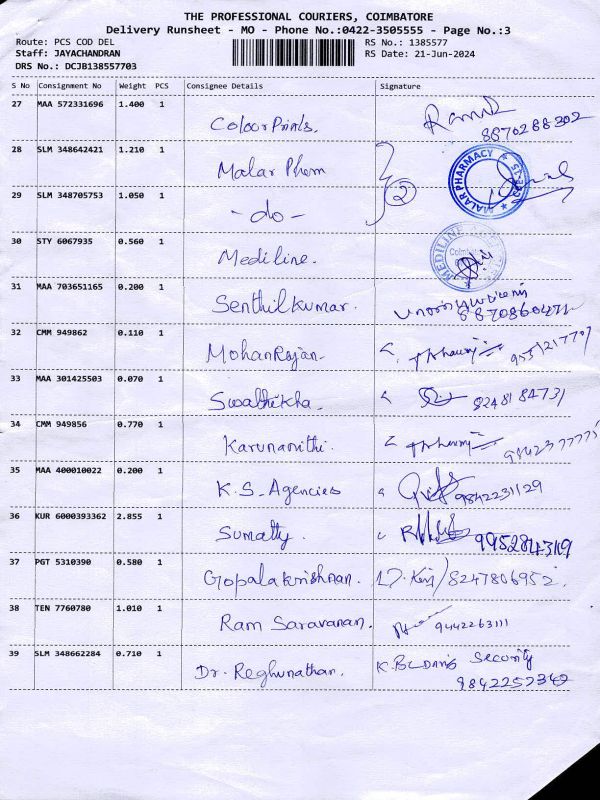 THE PROFESSIONAL COURIERS, COIMBATORE
Delivery Runsheet - MO - Phone No.:0422-3505555 - Page No.:3
Route: PCS COD DEL
RS No.: 1385577
Staff: JAYACHANDRAN
RS Date: 21-Jun-2024
DRS No.: DCJB138557703
S No Consignment No Weight PCS Consignee Details Signature
27 MAA 572331696 1.400 1 Colour Prints. 8870288302
28 SLM 348642421 1.210 1 Malar Phem 2 MALAR PHARMACY
29 SLM 348705753 1.050 1 - do -
30 STY 6067935 0.560 1 Mediline. MEDILINE
31 MAA 703651165 0.200 1 Senthilkumar. 8870860472
32 CMM 949862 0.110 1 MohanRajan-
33 MAA 301425503 0.070 1 Swathikha. 8248184731
34 CMM 949856 0.770 1 Karunanithi.
35 MAA 400010022 0.200 1 K.S. Agencies 9842231129
36 KUR 6000393362 2.855 1 Sumathy.
37 PGT 5310390 0.580 1 Gopalakrishnan. 8247806952
38 TEN 7760780 1.010 1 Ram Saravanan. 9442263111
39 SLM 348662284 0.710 1 Dr. Reghunathan. Security
9842252342